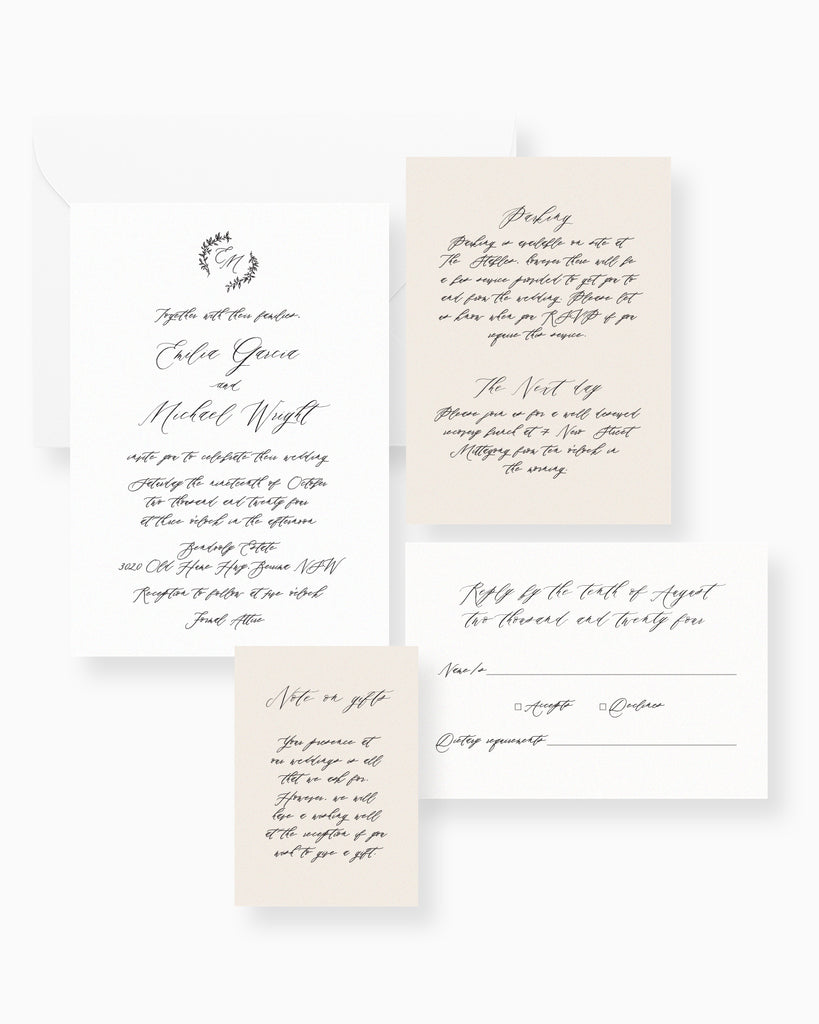 EM
Together with their families,
Emilia Garcia
and
Michael Wright
invite you to celebrate their wedding
Saturday the nineteenth of October
two thousand and twenty four
at three o'clock in the afternoon
Estate
3020 Old Hume Hwy Berrima NSW
Reception to follow at five o'clock
Formal Attire
Parking
Parking is available on site at
The Stables, however there will be
a bus service provided to get you to
and from the wedding. Please let
us know when you RSVP if you
require this service.
The Next day
Please join us for a well deserved
recovery brunch at 7 New Street
Mittagong from ten o'clock in
the morning.
Reply by the tenth of August
two thousand and twenty four
Name/s
Accepts Declines
Dietary requirements
Note on gifts
Your presence at
our weddings is all
that we ask for.
However, we will
have a wishing well
at the reception if you
want to give a gift.